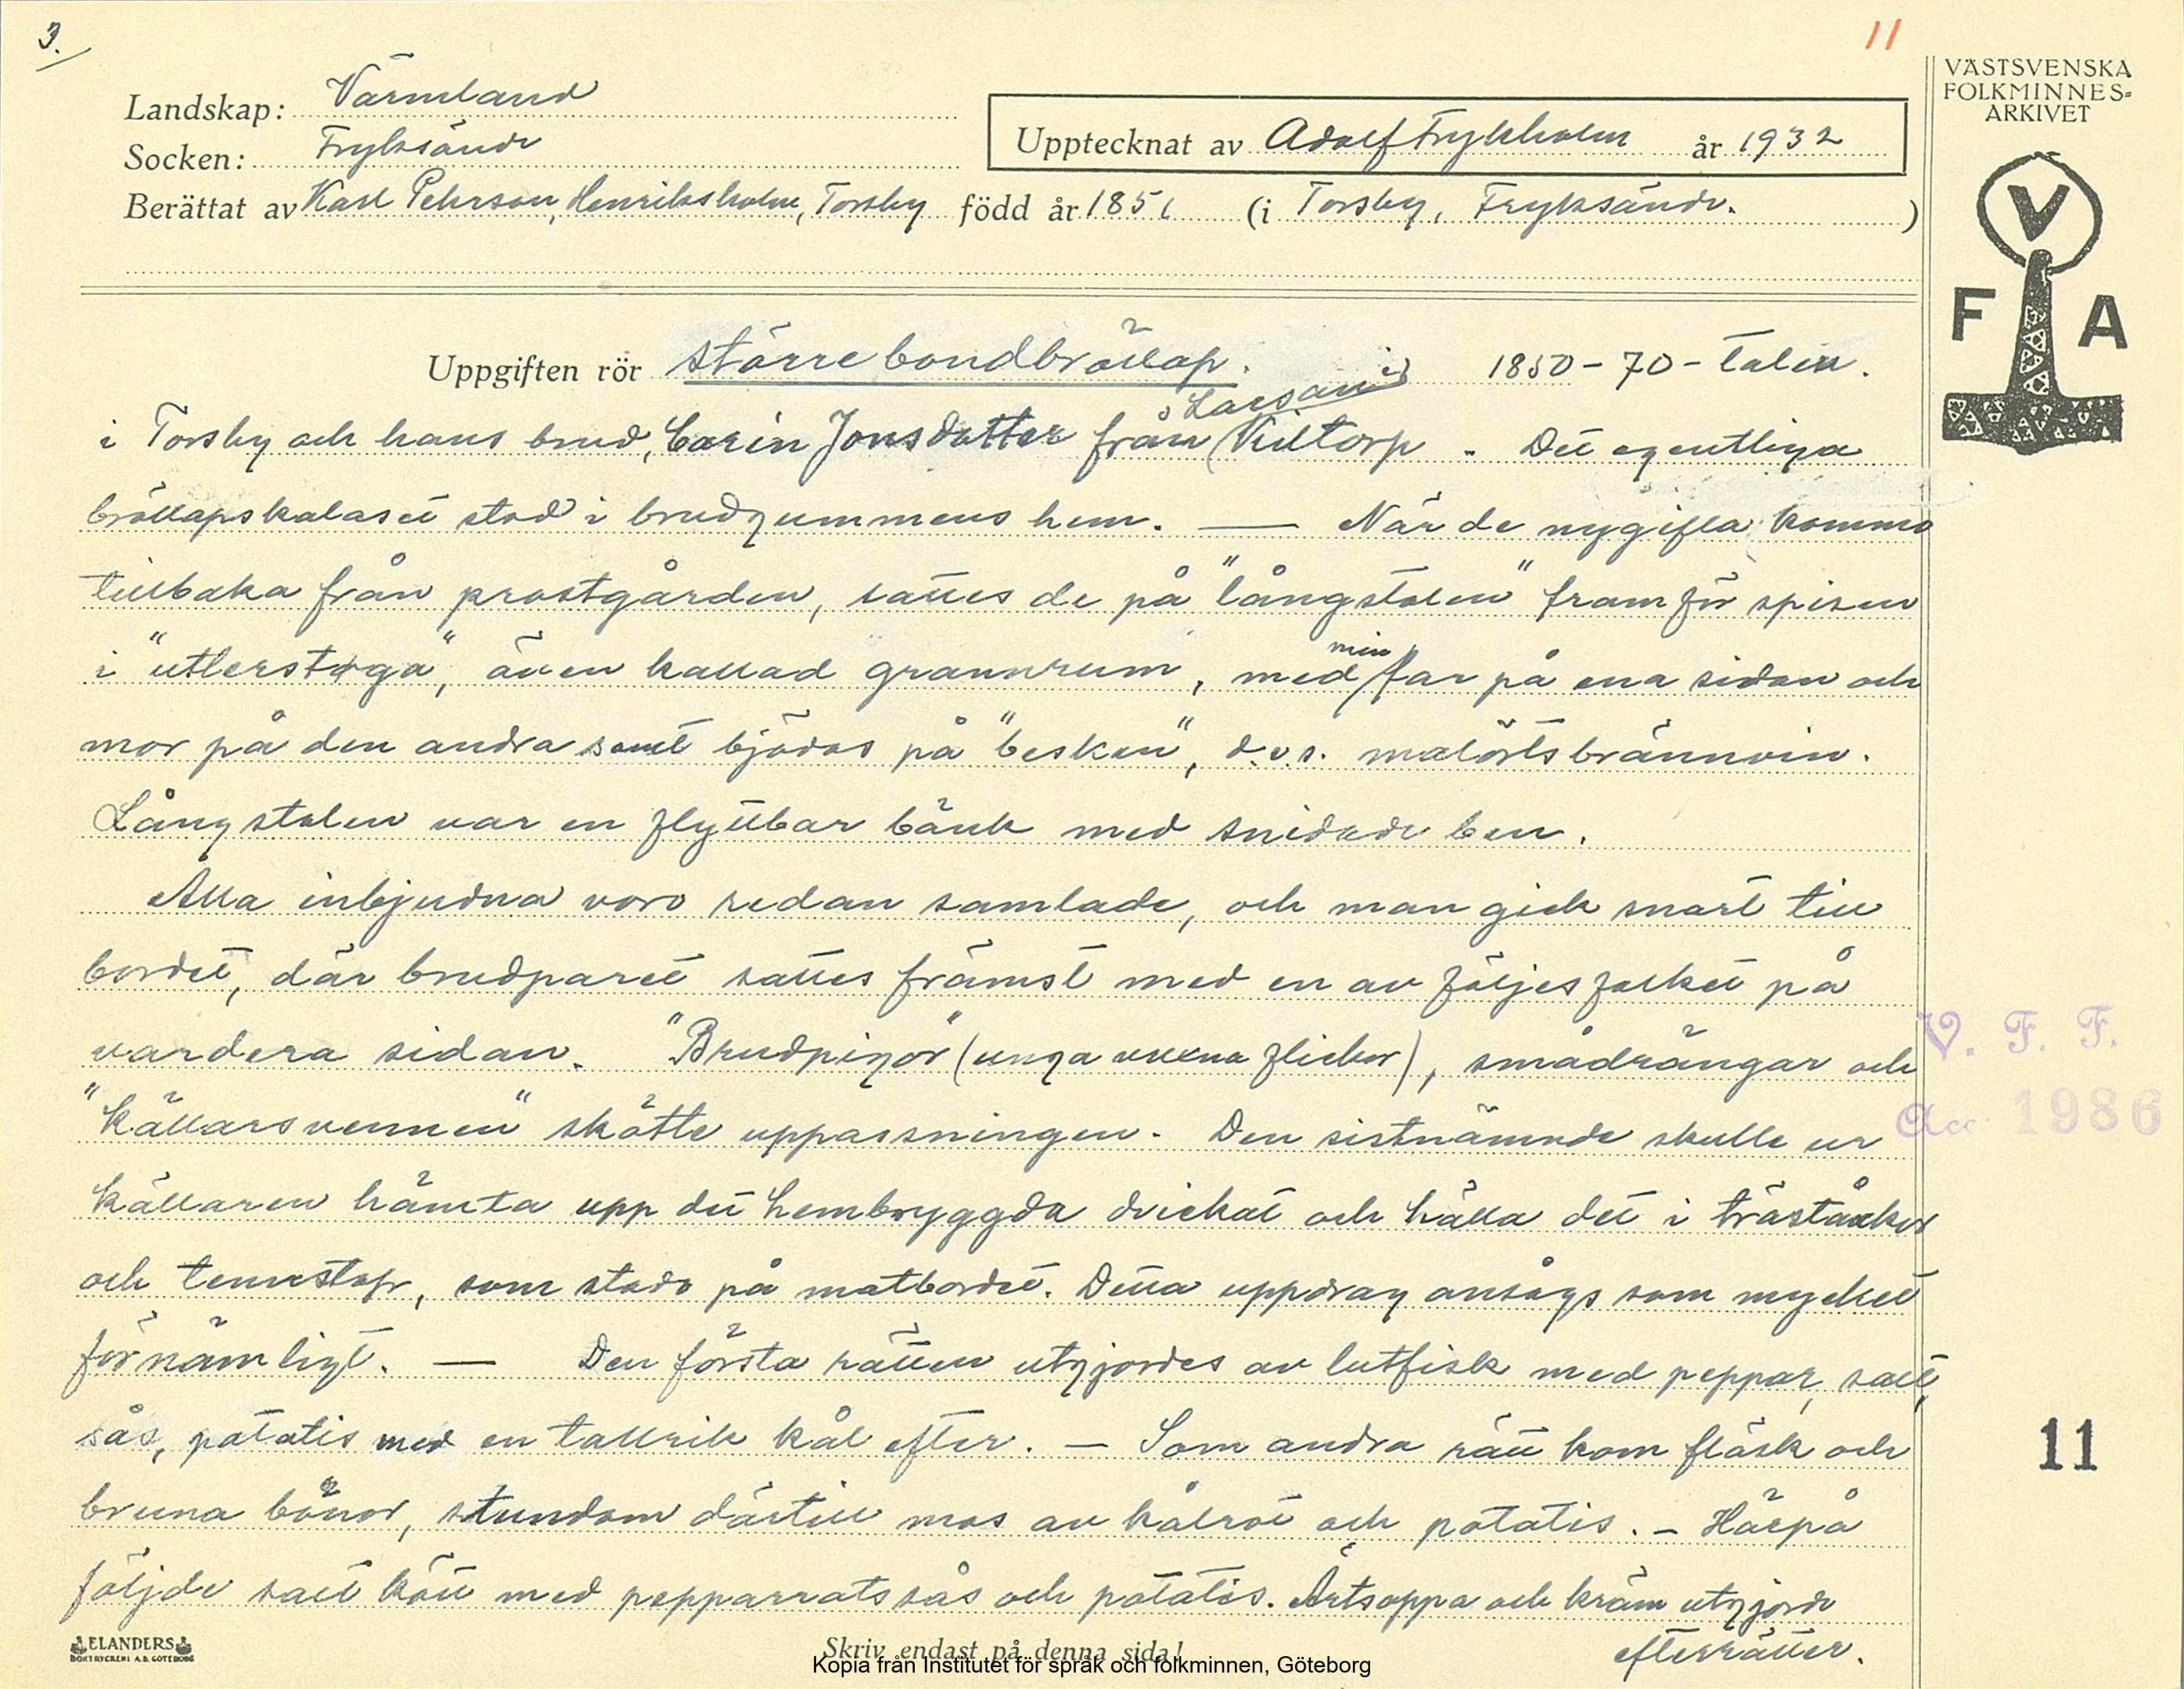 3.
11
VÄSTSVENSKA
FOLKMINNES-
ARKIVET
Landskap: Värmland
Socken: Fryksände
Upptecknat av Adolf Frykholm år 1932
Berättat av Karl Pehrson, Henriksholm, Torsby född år 1851 (i Torsby, Fryksände. )
V
F A
Uppgiften rör större bondbröllop. 1850-70-talen.
i Torsby och hans brud, Carin Jonsdotter från Larsani's Viltorp. Det egentliga
bröllapskalaset stod i brudgummens hem. — När de nygifta kommo
tillbaka från prostgården, sattes de på "långstolen" framför spisen
i "utlerstoga", även kallad grannrum, med min far på ena sidan och
mor på den andra samt bjödos på "besken", d.v.s. malörtsbrännvin.
Långstolen var en flyttbar bänk med snidade ben.
Alla inbjudna voro redan samlade, och man gick snart till
bordet, där brudparet sattes främst med en av följesfolket på
vardera sidan. "Brudpigor" (unga vuxna flickor), smådrängar och
"källarsvennen" skötte uppassningen. Den sistnämnde skulle ur
källaren hämta upp det hembryggda drickat och hälla det i trästånkor
och tennstop, som stodo på matbordet. Detta uppdrag ansågs som mycket
förnämligt. — Den första rätten utgjordes av lutfisk med peppar, salt,
sås, potatis med en tallrik kål efter. — Som andra rätt kom fläsk och
bruna bönor, stundom därtill mos av kålrot och potatis. — Härpå
följde salt kött med pepparrotssås och potatis. Ärtsoppa och kräm utgjorde
efterrätter.
V. F. F.
Acc 1986
11
ELANDERS
BOKTRYCKERI A.B. GÖTEBORG
Skriv endast på denna sida!
Kopia från Institutet för språk och folkminnen, Göteborg